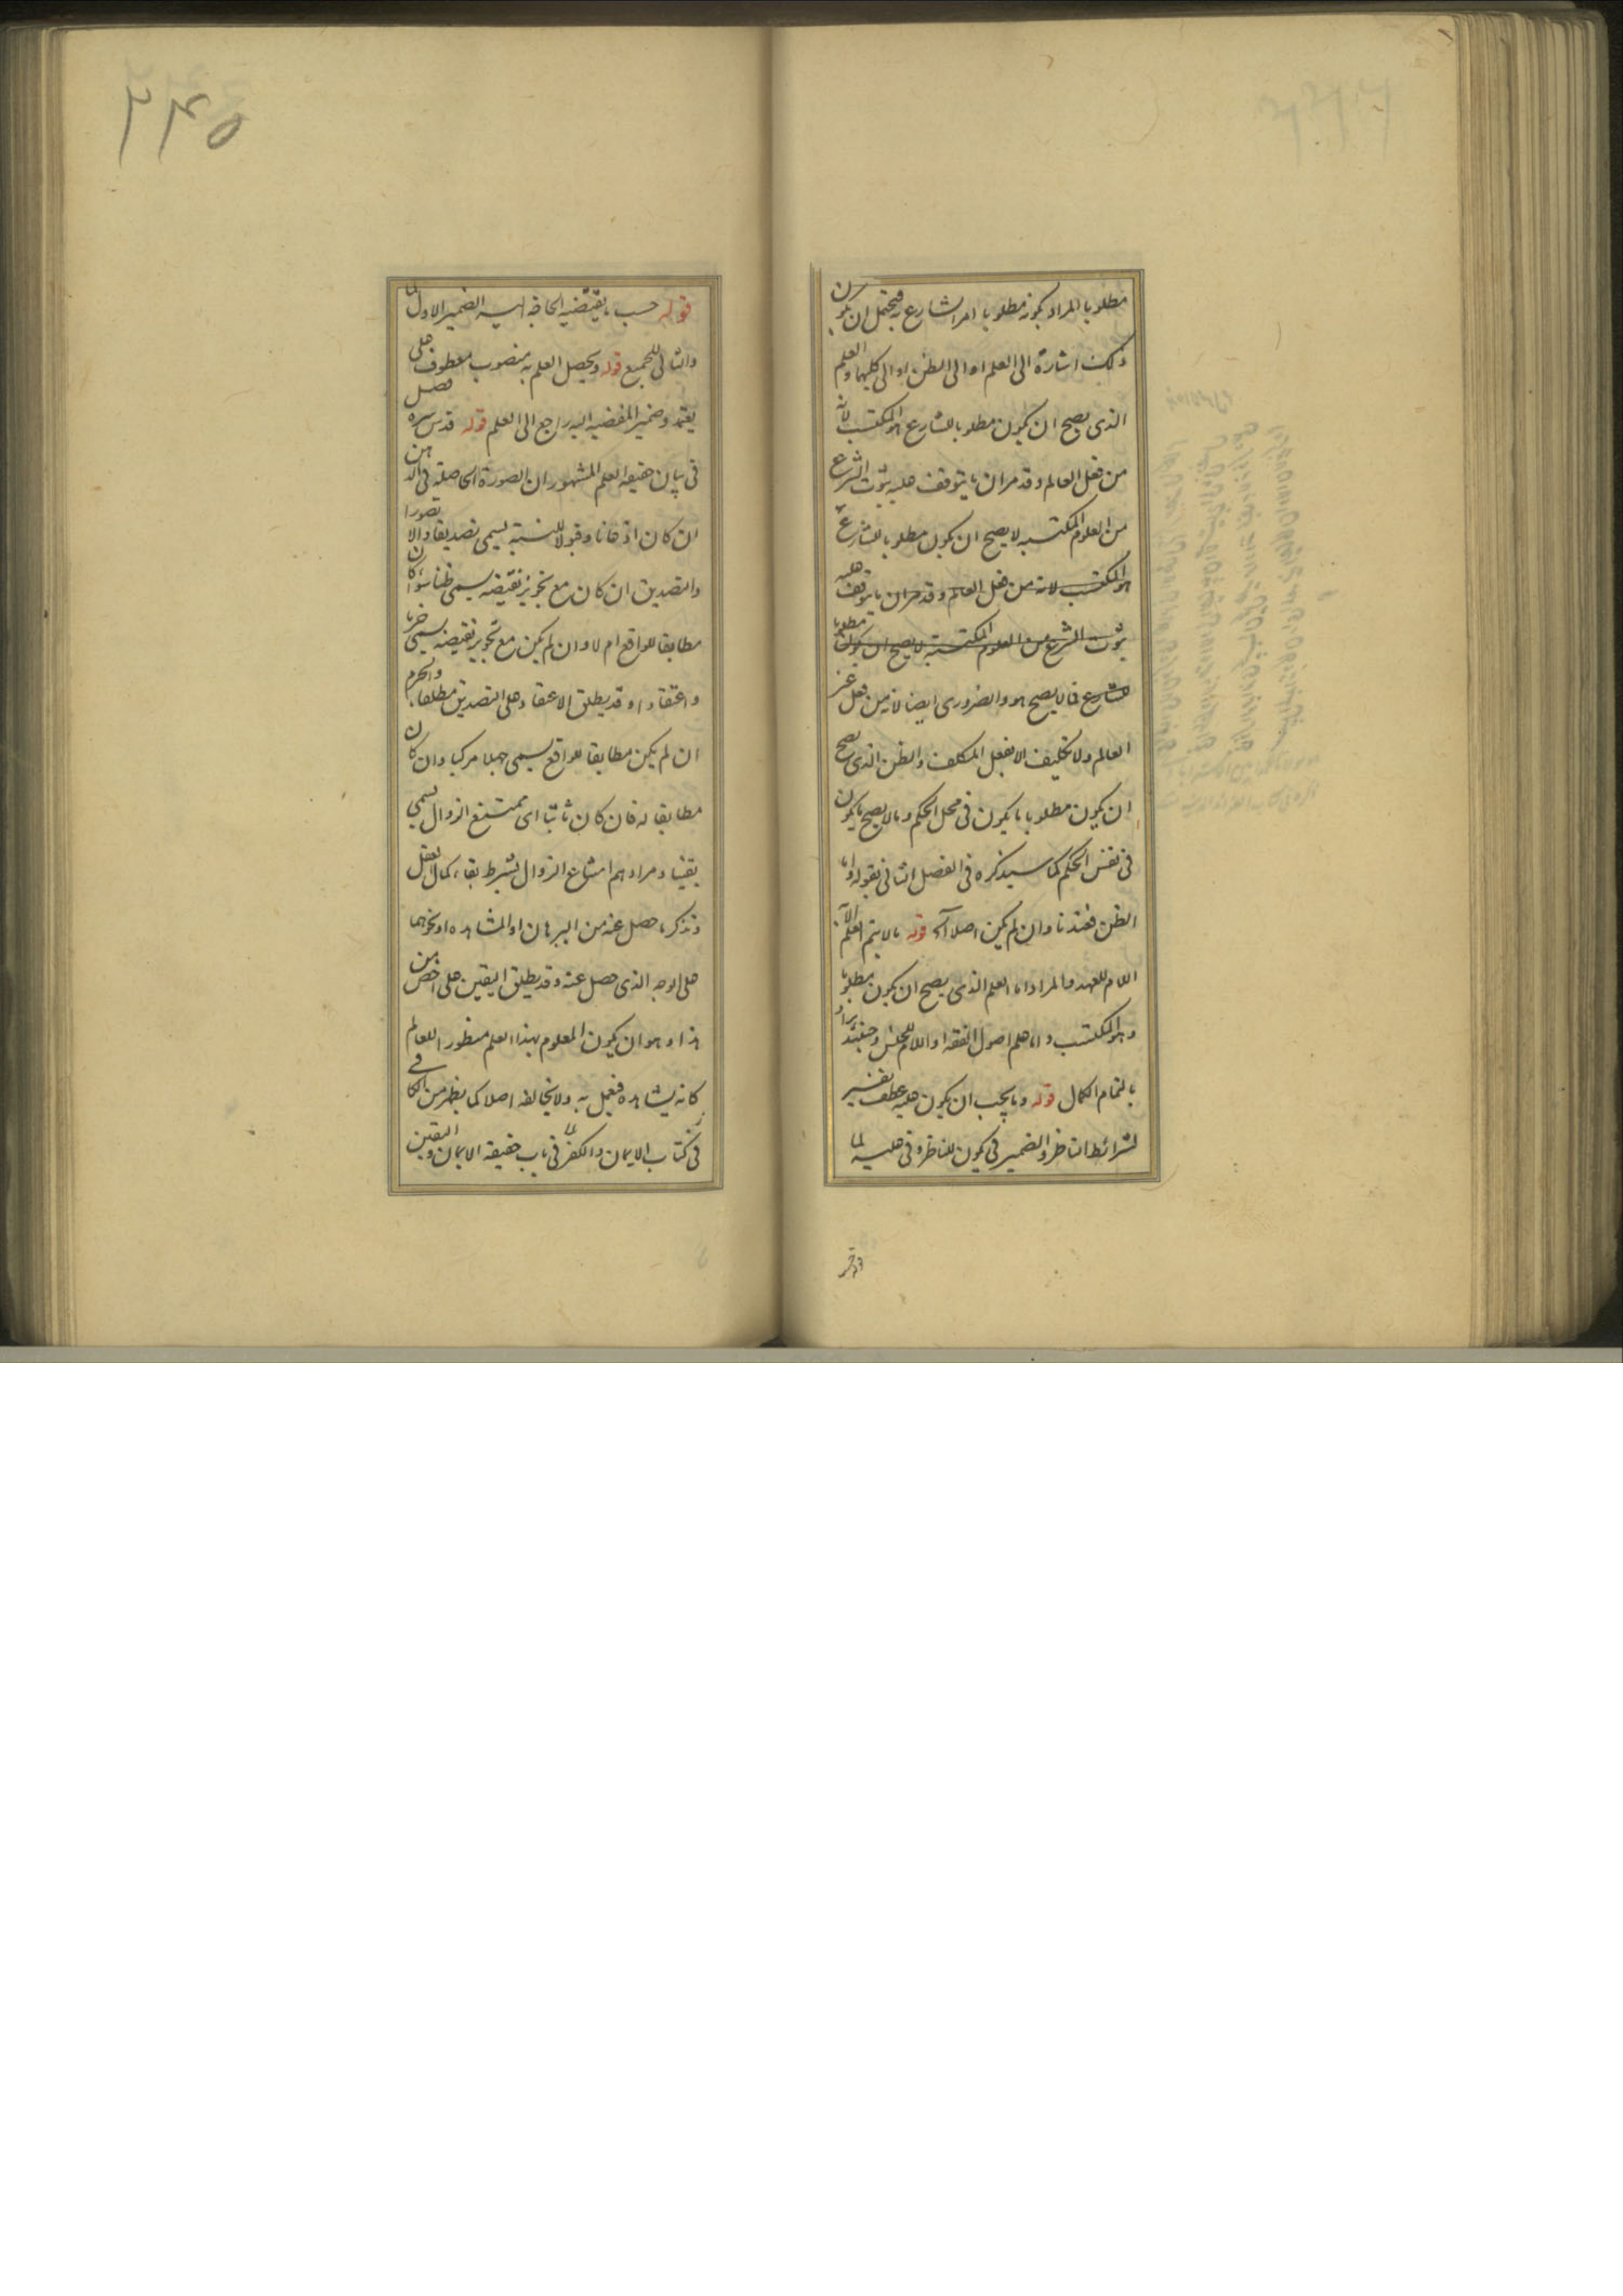 مطلوبا المراد بكونه مطلوبا امر الشارع به فيحتمل ان يكون
ذلك اشارة الى العلم او الى الظن او الى كليهما والعلم
الذى يصح ان يكون مطلوبا للشارع هو المكتسب لانه
من فعل العالم وقد مر ان ما يتوقف عليه ثبوت الشرع
من العلوم المكتسبه لا يصح ان يكون مطلوبا للشارع
هو المكتسب لانه من فعل العالم وقد مر ان ما يتوقف عليه
ثبوت الشرع من العلوم المكتسبة لا يصح ان يكون مطلوبا
للشارع فما لا يصح هو والضرورى ايضا لانه من فعل غير
العالم ولا تكليف الا بفعل المكلف والظن الذى يصح
ان يكون مطلوبا ما يكون فى محل الحكم وما لا يصح ما يكون
فى نفس الحكم كما سيذكره فى الفصل الثانى بقوله واما
الظن فعندنا وان لم يكن اصلا آه قوله ما لا يتم العلم الا به
اللام للعهد والمراد اما العلم الذى يصح ان يكون مطلوبا
وهو المكتسب واما علم اصول الفقه او اللام للجنس وحينئذ يراد
بالتمام الكمال قوله وما يجب ان يكون عليه عطف تفسير
لشرائط الناظر والضمير فى يكون للناظر وفى عليه لما
قوله حسب ما يقتضيه الحاقه اليه الضمير الاول لما
والثانى للجميع قوله ويحصل العلم به منصوب معطوف على
يعتمد وضمير المفضيه اليه راجع الى العلم قوله قدس سره فصل
فى بيان حقيقه العلم المشهور ان الصورة الحاصلة فى الذهن
ان كان اذعانا وقبولا للنسبة يسمى تصديقا والا تصورا
والتصديق ان كان مع تجويز نقيضه يسمى ظنا سواء كان
مطابقا للواقع ام لا وان لم يكن مع تجويز نقيضه يسمى جزما
واعتقادا وقد يطلق الاعتقاد على التصديق مطلقا والجزم
ان لم يكن مطابقا للواقع يسمى جهلا مركبا وان كان
مطابقا له فان كان ثابتا اى ممتنع الزوال يسمى
يقينا ومرادهم امتناع الزوال بشرط بقاء كمال العقل
وتذكر ما حصل عنه من البرهان او المشاهده او نحوهما
على الوجه الذى حصل عنه وقد يطلق اليقين على اخص من
هذا وهو ان يكون المعلوم بهذا العلم منظورا للعالم
كانه يشاهده فيعمل به ولا يخالفه اصلا كما يظهر من الكافى
فى كتاب الايمان والكفر فى باب حقيقة الايمان واليقين
۲۴۵